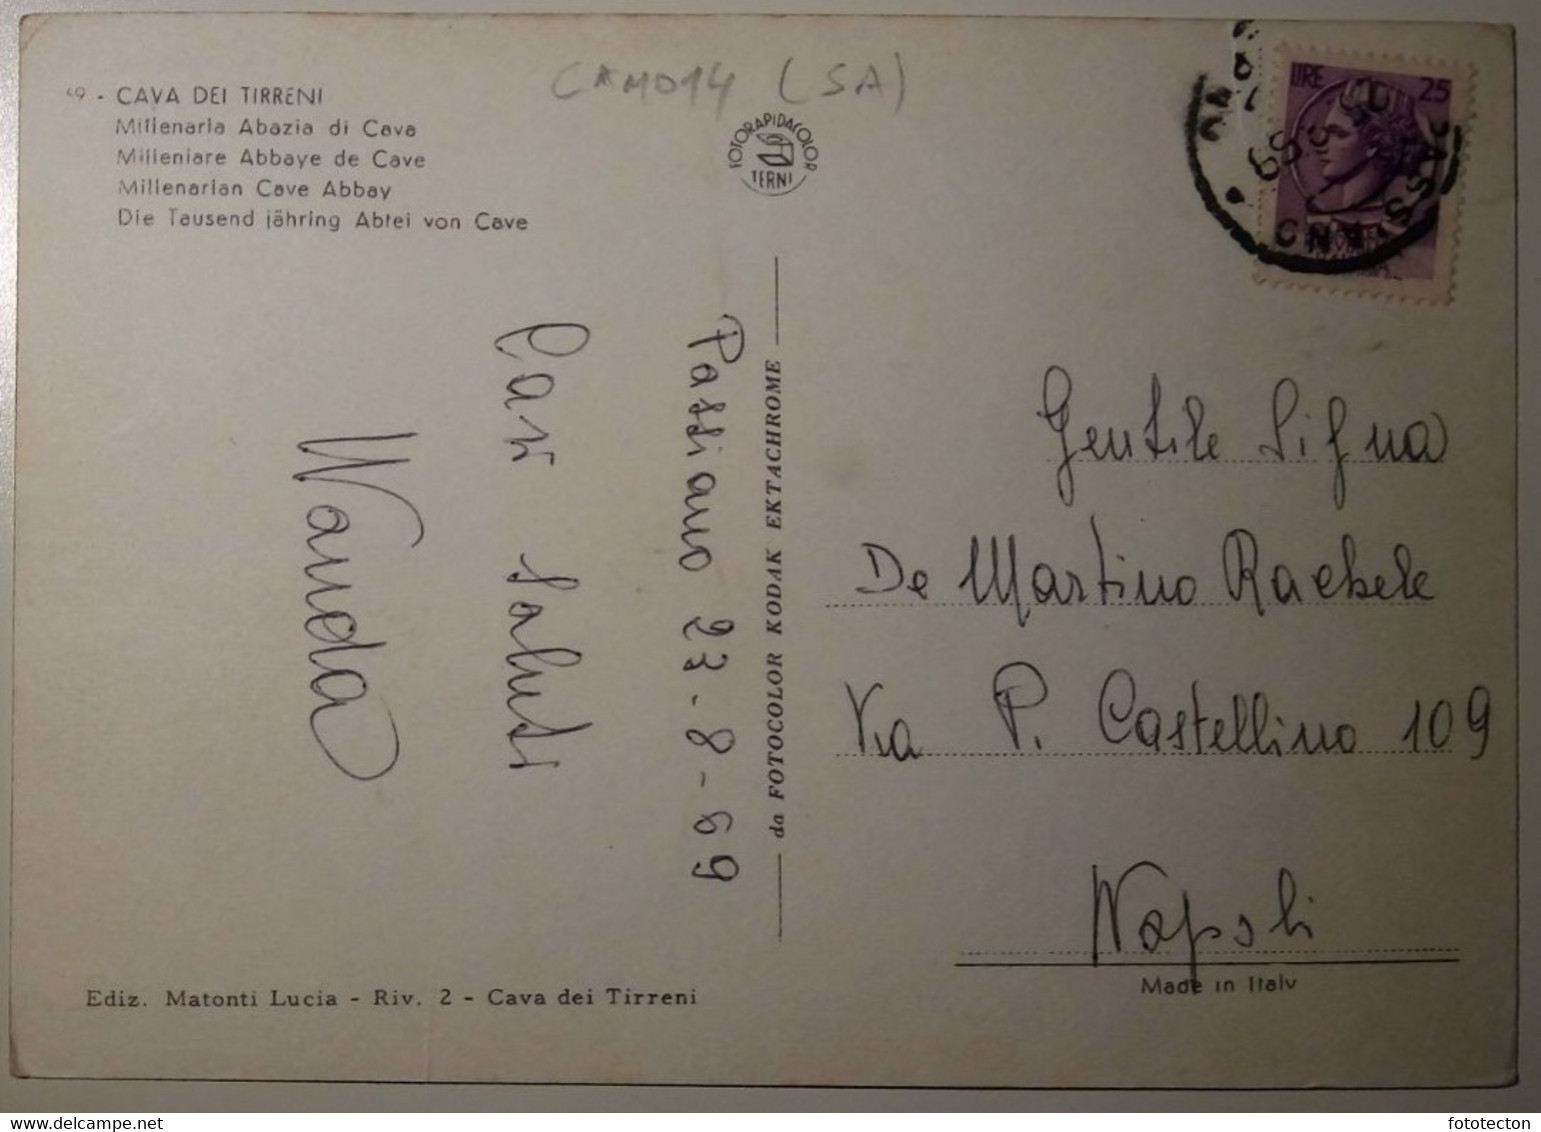 49 - CAVA DEI TIRRENI
Millenaria Abazia di Cava
Milleniare Abbaye de Cave
Millenarian Cave Abbay
Die Tausend jähring Abtei von Cave
CAMO14 (SA)
FOTORAPIDACOLOR
TERNI
LIRE 25
PASSIANO
Passiano 27-8-69
Cari Saluti
Wanda
da FOTOCOLOR KODAK EKTACHROME
Gentile Sig.na
De Martino Rachele
Via P. Castellino 109
Napoli
Made in Italy
Ediz. Matonti Lucia - Riv. 2 - Cava dei Tirreni
fototecton